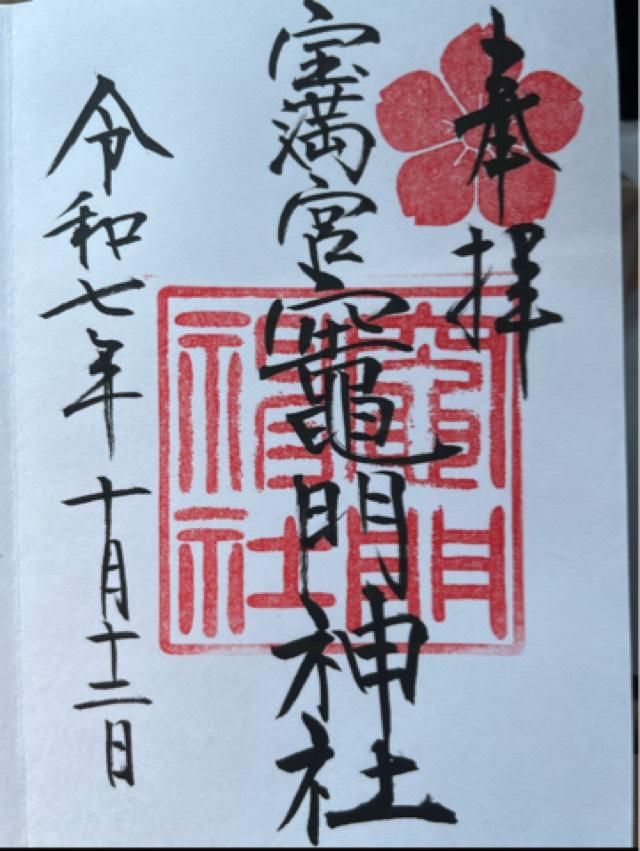 奉拝
宝満宮竈門神社
竈門神社
令和七年十月十二日